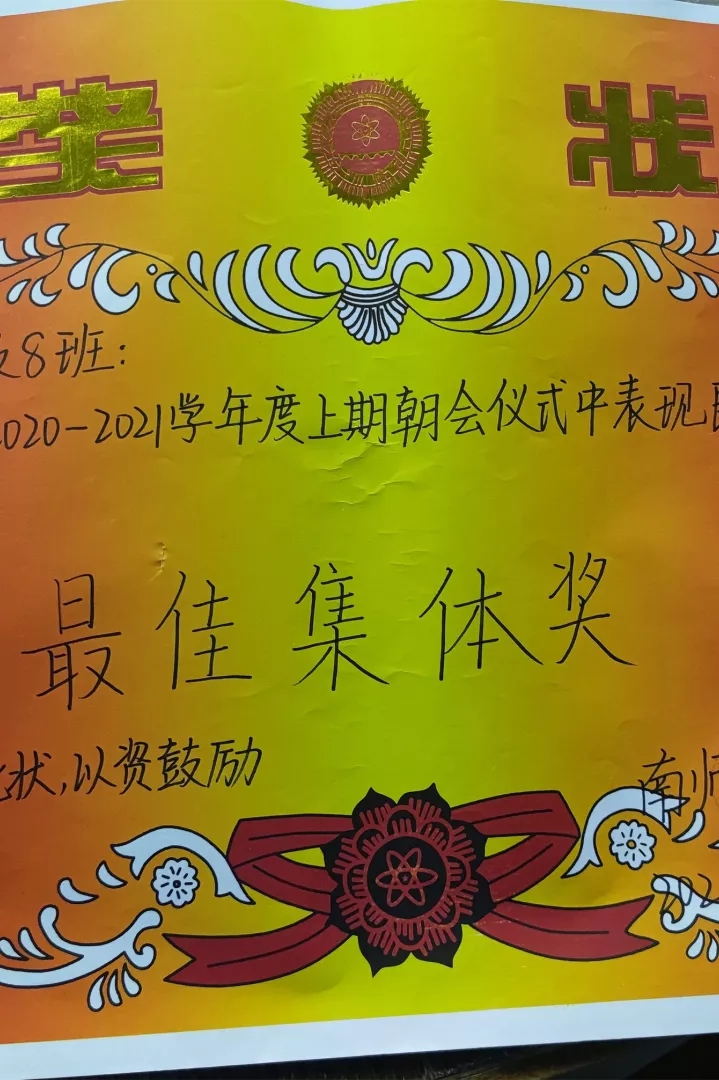 奖 状
8班：
2020-2021学年度上期朝会仪式中表现
最佳集体奖
状，以资鼓励
南师